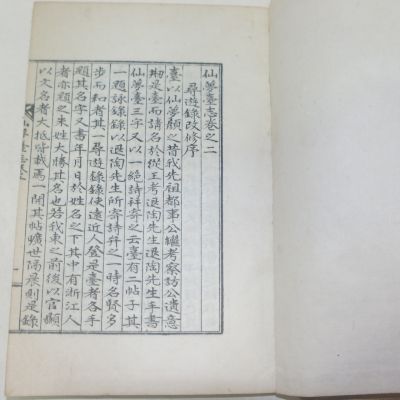 仙夢臺志卷之二
尋遊錄改修序
臺以仙夢顏之昔我先祖都事公繼考察訪公遺意
刱是臺而請名於從王考退陶先生退陶先生手書
仙夢臺三字又以一絶詩并寄之云臺有二帖子其
一題詠錄錄以退陶先生所寄詩弁之一時名賢多
步而和者其一尋遊錄錄使遠近人登是臺者各手
題其名字又書年月日於姓名之下其中有浙江人
者亦題之朱姓大勝其名也若我東之前後以官顯
以文名者大抵皆載焉一開其帖曠世隔晨則是錄